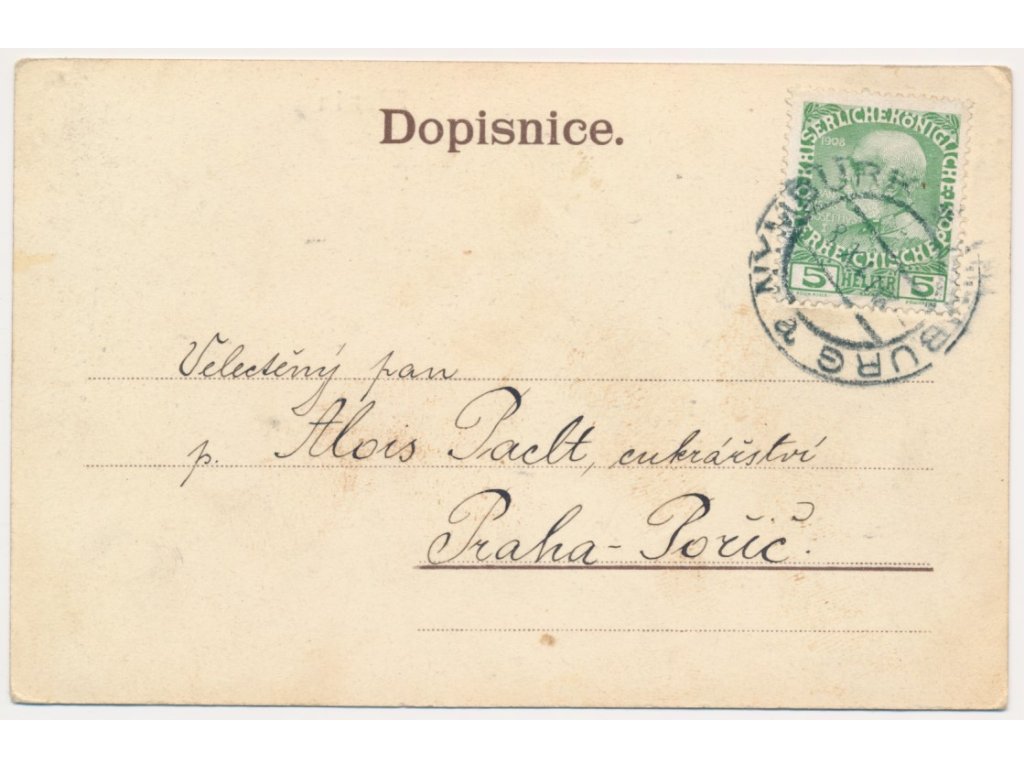 Dopisnice.
KAISERLICHE KÖNIGLICHE
1908
ÖSTERREICHISCHE POST
5 HELLER 5
NYMBURK
NIMBURG a
Velectěný pan
p. Alois Paclt, cukrářství
Praha-Poříč.